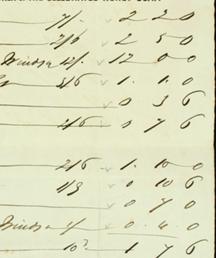 7/- 2 2 0
2/6 2 5 0
Windsor 4/- 12 0 0
3/6 1 1 0
0 3 6
2/6 0 7 6
2/6 1 10 0
1/9 0 10 6
0 7 0
Windsor 0 4 0
10 1 7 6